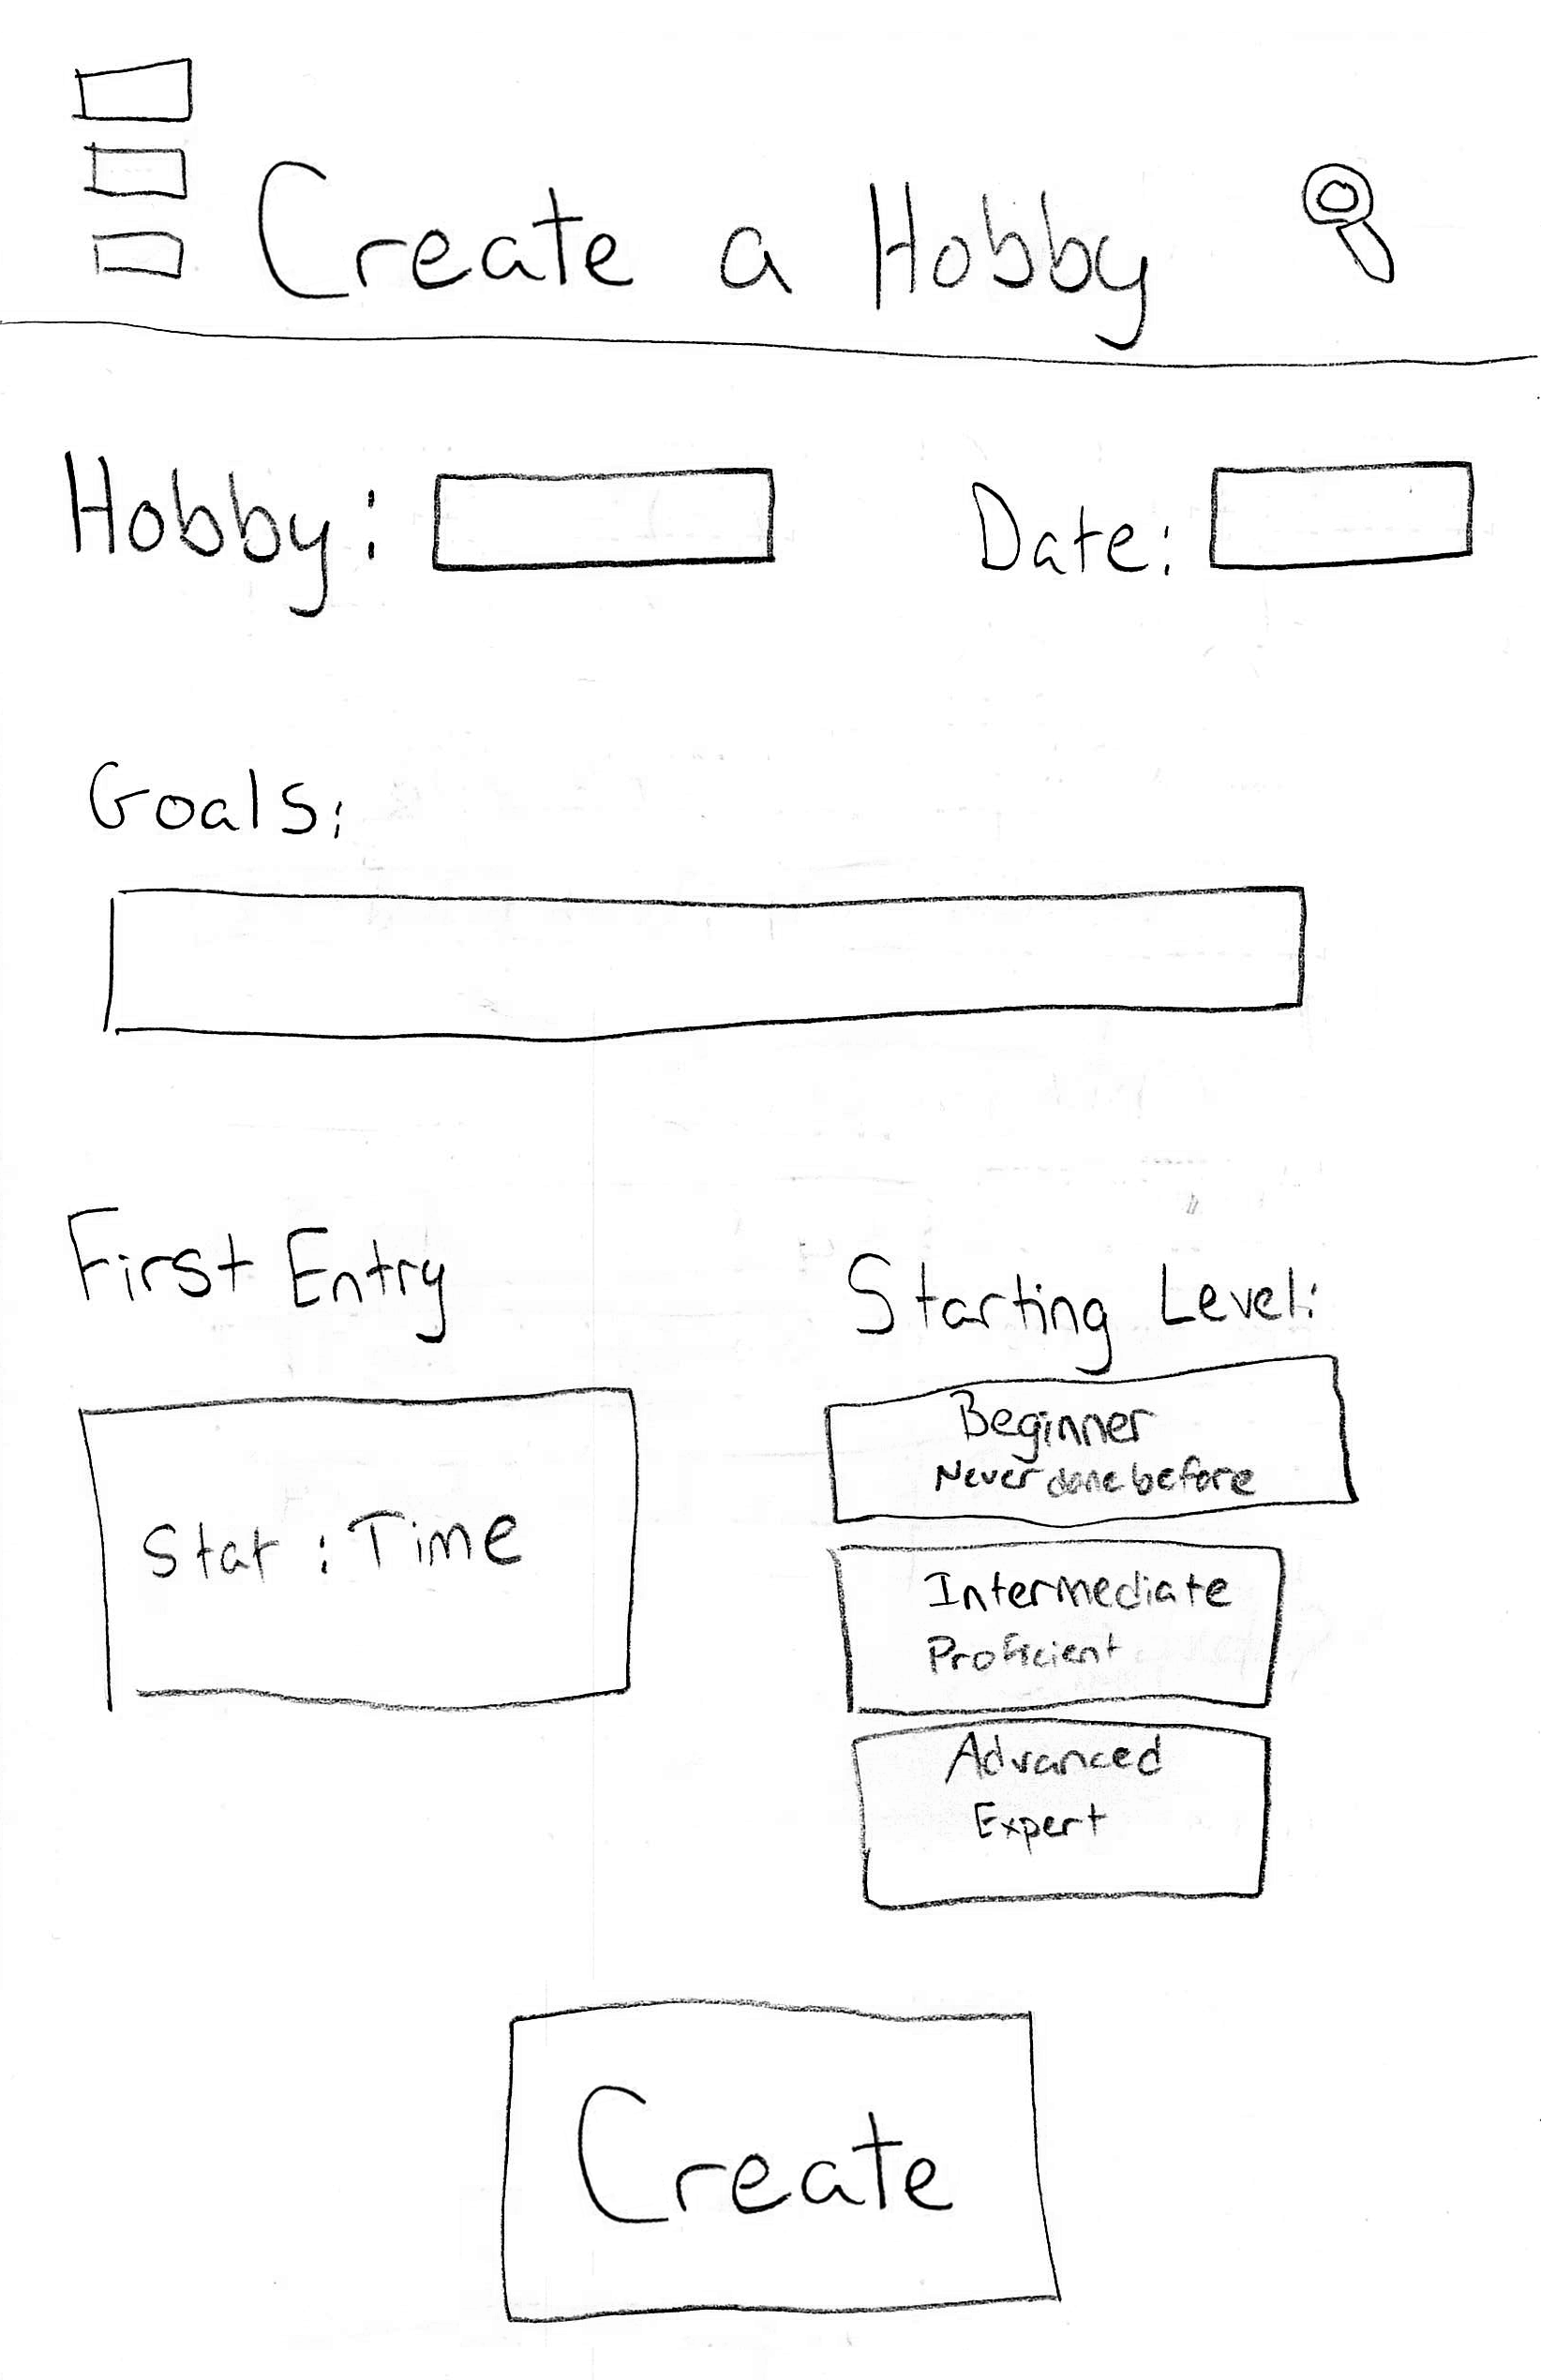 Create a Hobby
Hobby:
Date:
Goals:
First Entry
Stat : Time
Starting Level:
Beginner
Never done before
Intermediate
Proficient
Advanced
Expert
Create